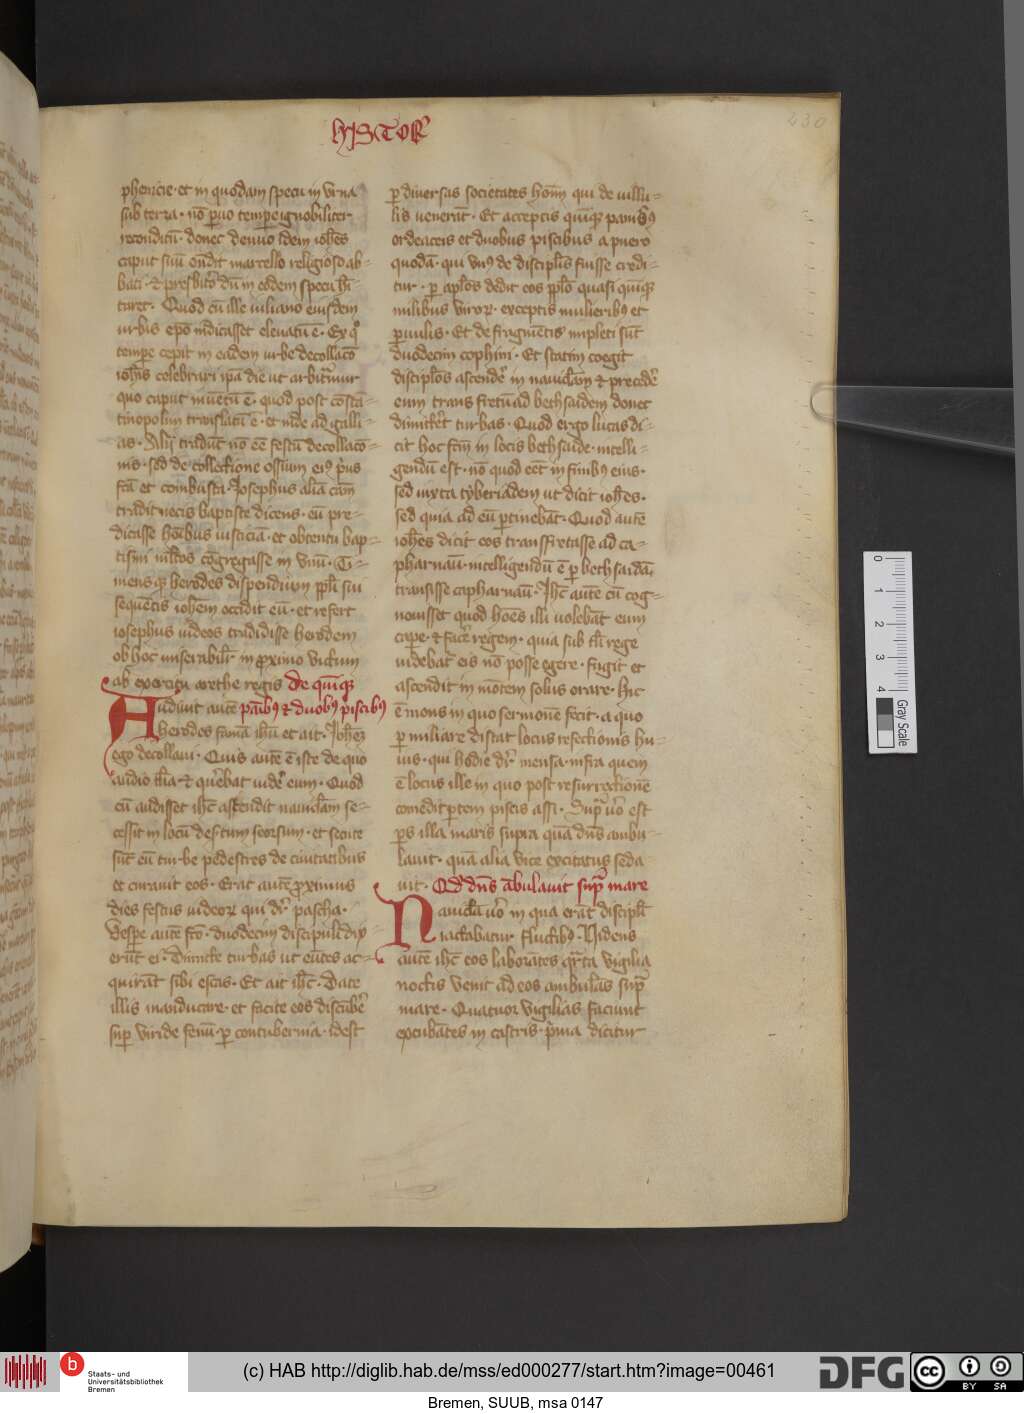 hISTOR
230
phenicie · et in quodam specu in urna
sub terra · nō p̄uo tempe ignobiliter
reconditū · donec denuo idem ioh̄es
caput suū ondit marcello religioso ab-
bati · & presbitō dū in eodem specu hi-
taret · Quod cū ille iuliano eiusdem
urbis ep̄o indicasset eleuatū ē · Ex q°
tempe cepit in eadem urbe decollacō
ioh̄is celebrari ip̄a die ut arbit̄mur
quo caput inuētū ē · quod post cōstā-
tinopolim translatū ē · et inde ad galli-
as · Alij tradūt nō eē festū decollacō-
nis · sed de collectione ossium eiꝰ p̄us
fc̄a et combusta · Josephus aliā cām
tradit necis baptiste dicens · eū pre-
dicasse hoībus iusticiā · et obtentu bap-
tismi mltos cōgregasse in unū · Ti-
mensqꝫ herodes dispendium ppl̄i sui
sequētis ioh̄em occidit eū · et refert
iosephus iudeos tradidisse herodem
ob hoc miserabilr̄ in proximo uictum
ab exercitu arethe regis de quīqꝫ
Audiuit autē panibꝰ & duobꝰ piscibꝰ
herodes famā ih̄u et ait · Joh̄eꝫ
ego decollaui · Quis autē ē iste de quo
audio tl̄ia · & querebat uidē eum · Quod
cū audisset ih̄c ascendit nauiclam se-
cessit in locū desertum seorsum · et secute
sūt eū turbe pedestres de ciuitatibus
et curauit eos · Erat autē proximus
dies festus iudeoꝝ qui dr̄ pascha ·
Vespe autē fc̄o · duodecim discipuli dix-
erūt ei · Dimitte turbas ut eūtes ac-
quirāt sibi escas · Et ait ih̄c · Date
illis manducare · et facite eos discūbē
sup viride fenū · p contubernia · idest
p diuersas societates hom̄ qui de uillu-
lis uenerāt · Et acceptis quīqꝫ panibꝰ
ordeaceis et duobus piscibus a puero
quodā · qui unꝰ de discipl̄is fuisse credi-
tur · p apl̄os dedit eos ppl̄o quasi quīqꝫ
milibus viroꝝ · exceptis mulieribꝰ et
paruulis · Et de fragmētis impleti sūt
duodecim cophini · Et statim coegit
discipl̄os ascendē in nauiclam & precedē
eum trans fretū ad bethsaidem donec
dimittet turbas · Quod ergo lucas di-
cit hoc fc̄m in locis bethsaide · intelli-
gendū est · nō quod eēt in finibꝰ eius ·
sed iuxta tyberiadem ut dicit ioh̄es ·
sed quia ad eū p̄tinebāt · Quod autē
ioh̄es dicit eos transfretasse ad ca-
pharnaū · intelligendū ē p bethsaidā
transisse capharnaū · Ih̄c autē cū cog-
nouisset quod hoēs illi uolebāt eum
cape · & facē regem · quia sub tl̄i rege
uidebat eis nō posse egere · fugit et
ascendit in mōtem solus orare · hic
ē mons in quo sermonē fecit · a quo
p miliare distat locus refectionis hu-
ius · qui hodie dr̄ mensa · infra quem
ē locus ille in quo post resurrectionē
comedit p̄tem piscis assi · Sup̄ uo est
p̄s illa maris supra quā dn̄s ambu-
lauit · quā alia vice excitatus seda
uit · Qd dn̄s ābulauit sup mare
Nauicla uo in qua erāt discipl̄i
iactabatur fluctibꝰ · Videns
autē ih̄c eos laborātes qrta vigilia
noctis venit ad eos ambulās sup
mare · Quatuor vigilias faciunt
excubātes in castris · pma dicitur
0
1
2
3
4
Gray Scale
b
Staats- und
Universitätsbibliothek
Bremen
(c) HAB http://diglib.hab.de/mss/ed000277/start.htm?image=00461
DFG
cc BY SA
Bremen, SUUB, msa 0147